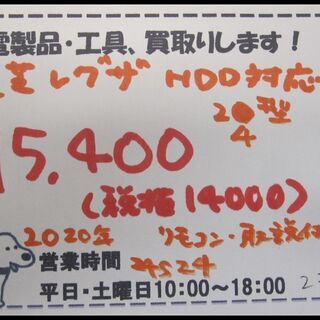 電製品・工具、買取りします！
芝レグザ HDD対応
20型
4
15,400
(税抜14000)
2020年 リモコン・取説付
営業時間 24S24
平日・土曜日10:00～18:00